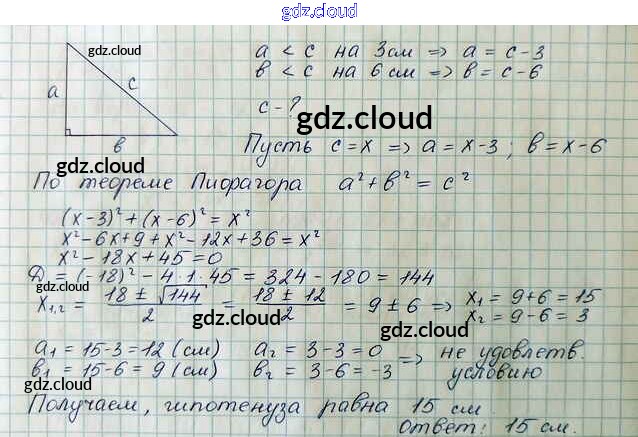 gdz.cloud
gdz.cloud
a < c на 3см => a = c - 3
в < c на 6 см => в = c - 6
a
c
в
c - ?
gdz.cloud
gdz.cloud
Пусть c = x => a = x - 3 ; в = x - 6
По теореме Пифагора a² + в² = c²
(x - 3)² + (x - 6)² = x²
x² - 6x + 9 + x² - 12x + 36 = x²
x² - 18x + 45 = 0
gdz.cloud
D = (-18)² - 4·1·45 = 324 - 180 = 144
gdz.cloud
x₁,₂ = (18 ± √144)/2 = (18 ± 12)/2 = 9 ± 6 => x₁ = 9 + 6 = 15
x₂ = 9 - 6 = 3
gdz.cloud
gdz.cloud
a₁ = 15 - 3 = 12 (см) a₂ = 3 - 3 = 0 => не удовлетв.
в₁ = 15 - 6 = 9 (см) в₂ = 3 - 6 = -3 условию
gdz.cloud
Получаем, гипотенуза равна 15 см.
gdz.cloud
ответ: 15 см.